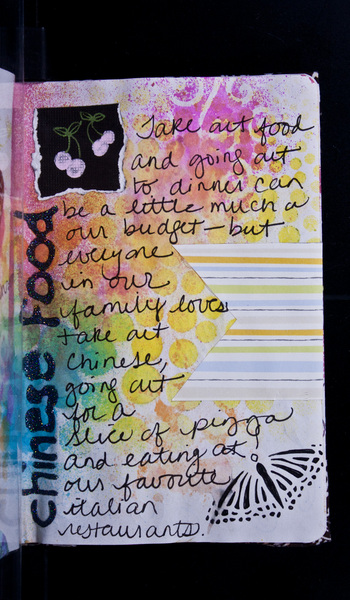 chinese food
Take out food
and going out
to dinner can
be a little much a
our budget—but
everyone
in our
family loves
take out
chinese,
going out
for a
slice of pizza
and eating at
our favorite
italian
restaurants.